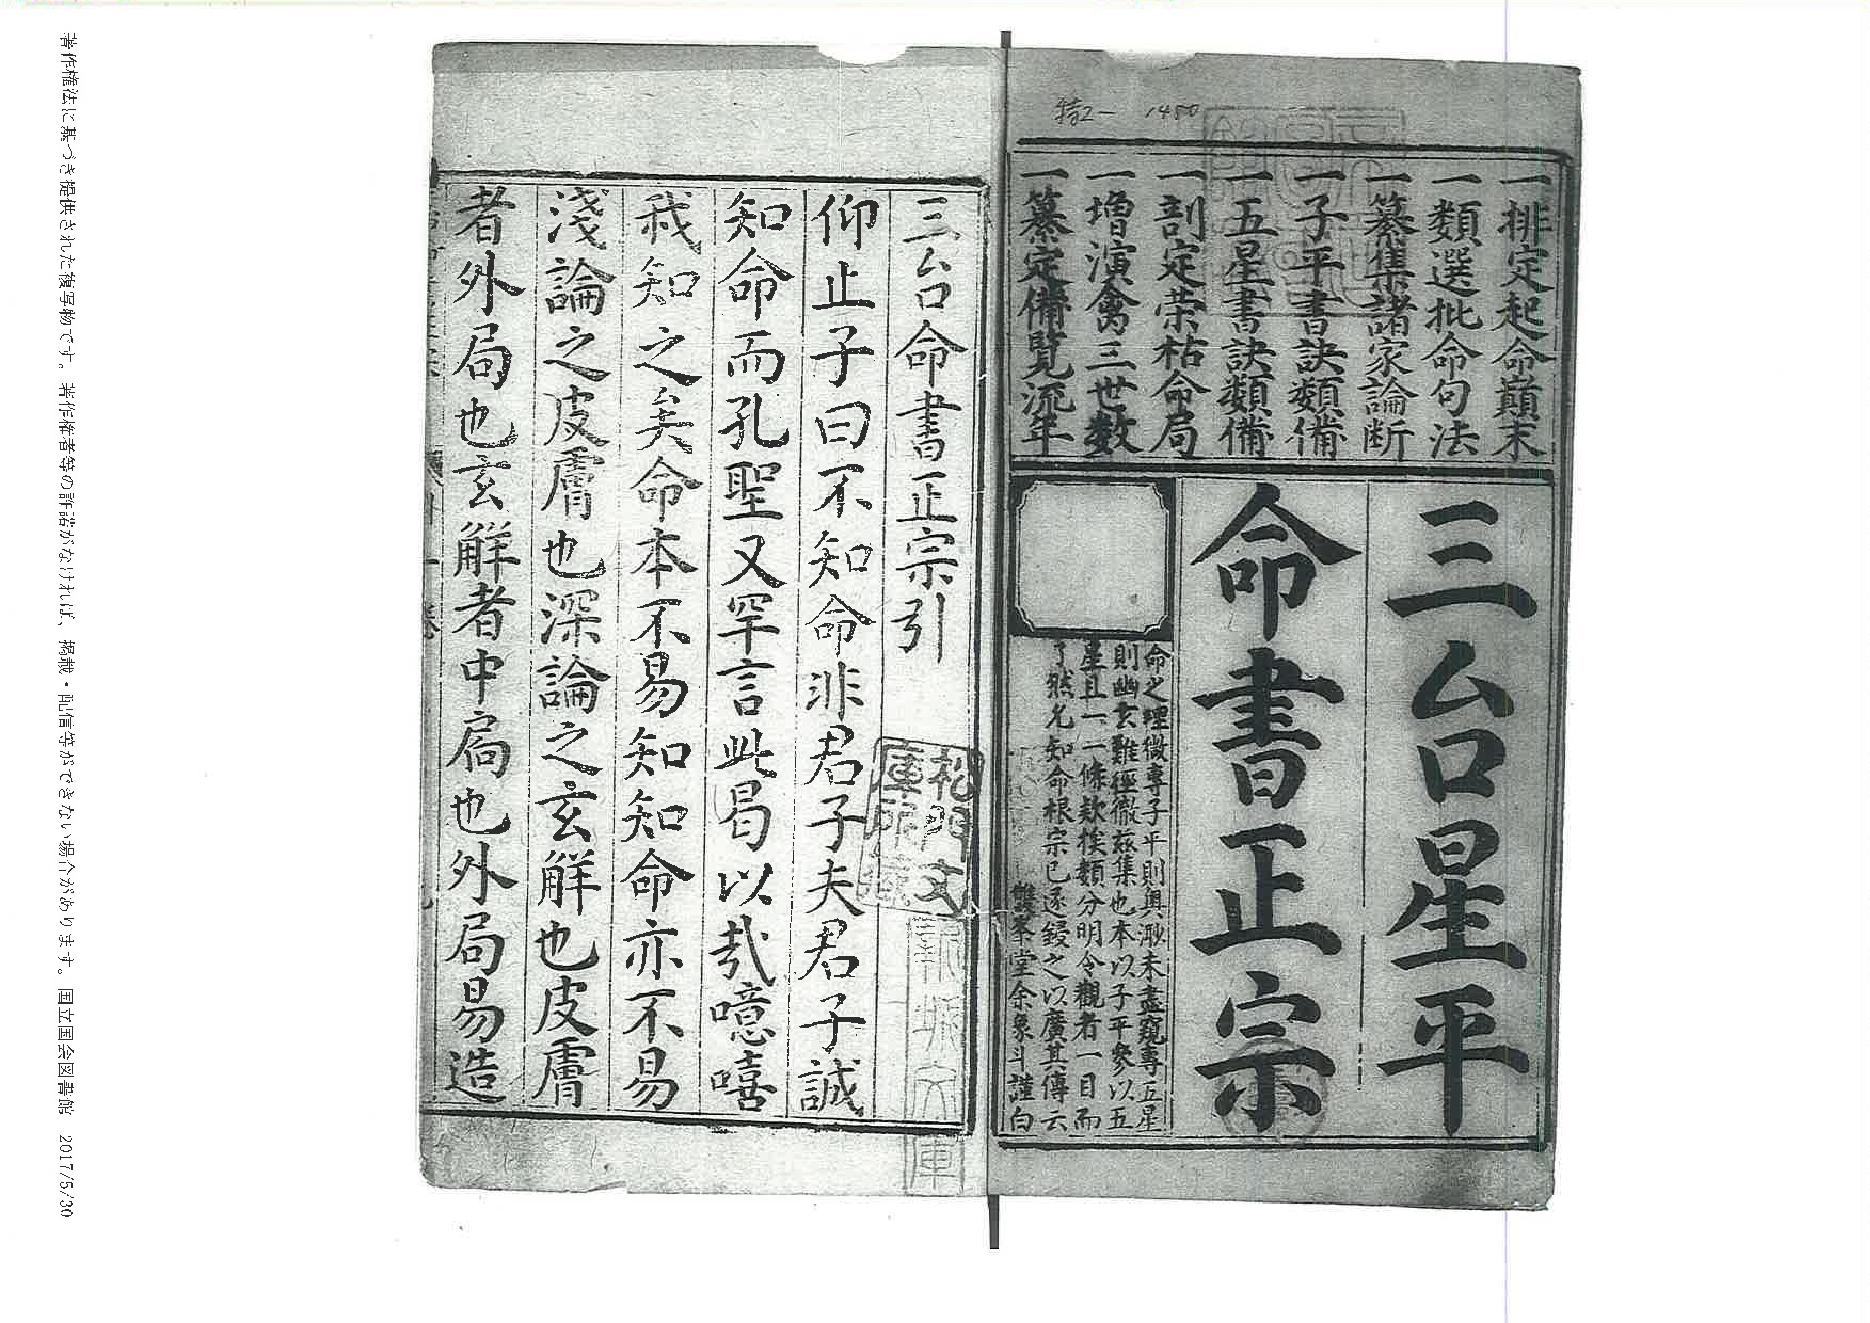 特2-1480
一排定起命巔末
一類選批命句法
一纂集諸家論断
一子平書訣類備
一五星書訣類備
一刻定荣枯命局
一増演禽三世数
一纂定備覽流年
三台星平
命書正宗
命之理微專子平則奧渺未盡窺專五星
則幽玄難徑徹玆集也本以子平參以五
星且一一條欵俟類分明令觀者一目而
了然允知命根宗已逐鋟之以廣其傳云
雙峯堂余象斗謹白
三台命書正宗引
仰止子曰不知命非君子夫君子誠
知命而孔聖又罕言此曷以㦲噫嘻
我知之矣命本不易知知命亦不易
淺論之皮膚也深論之玄觧也皮膚
者外局也玄觧者中扃也外局易造
松門文
庫所藏
新城文庫
著作権法に基づき提供された複写物です。著作権者等の許諾がなければ、掲載・配信等ができない場合があります。国立国会図書館 2017/5/30